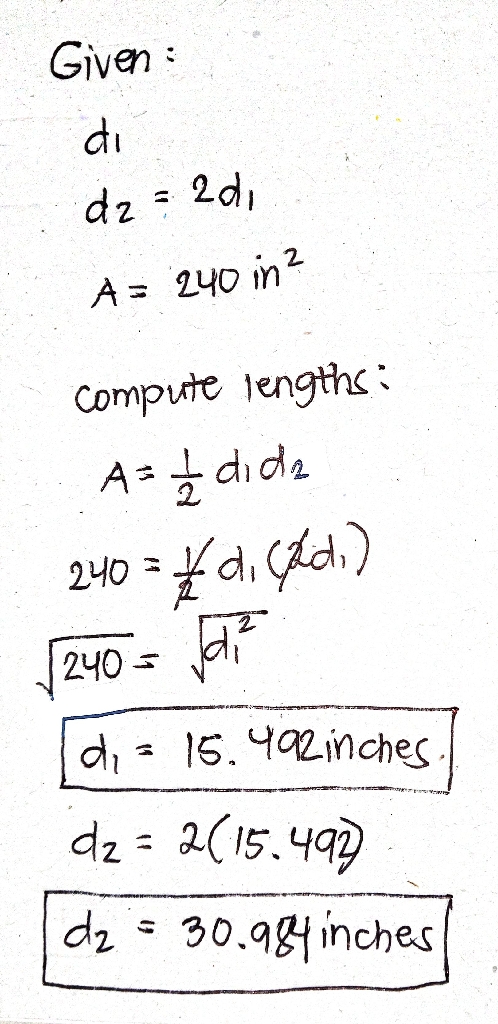 Given:
d₁
d₂ = 2d₁
A = 240 in²
compute lengths:
A = 1/2 d₁d₂
240 = 1/2 d₁(2d₁)
√240 = √d₁²
d₁ = 15.492 inches.
d₂ = 2(15.492)
d₂ = 30.984 inches